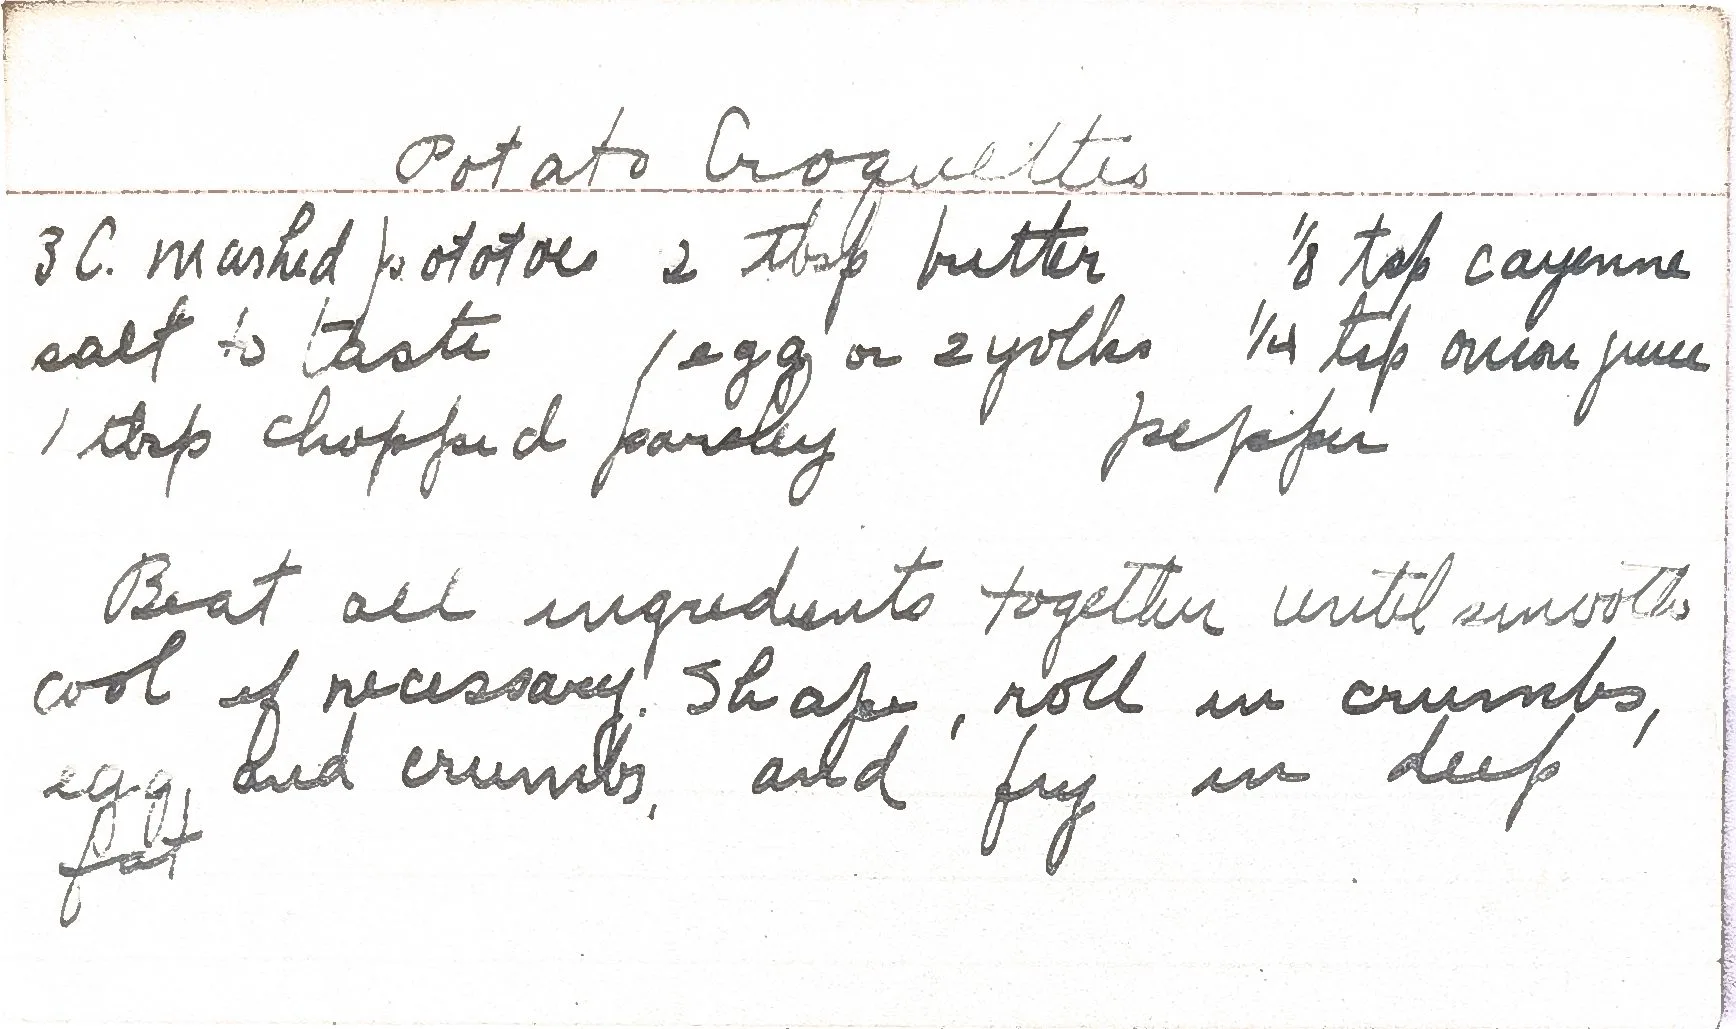 Potato Croquettes
3 C. mashed pototoes 2 tbsp butter 1/8 tsp cayenne
salt to taste 1 egg or 2 yolks 1/4 tsp onion juice
1 tbsp chopped parsley pepper
Beat all ingredients together until smooth
cool if necessary. Shape, roll in crumbs,
egg, and crumbs, and fry in deep
fat